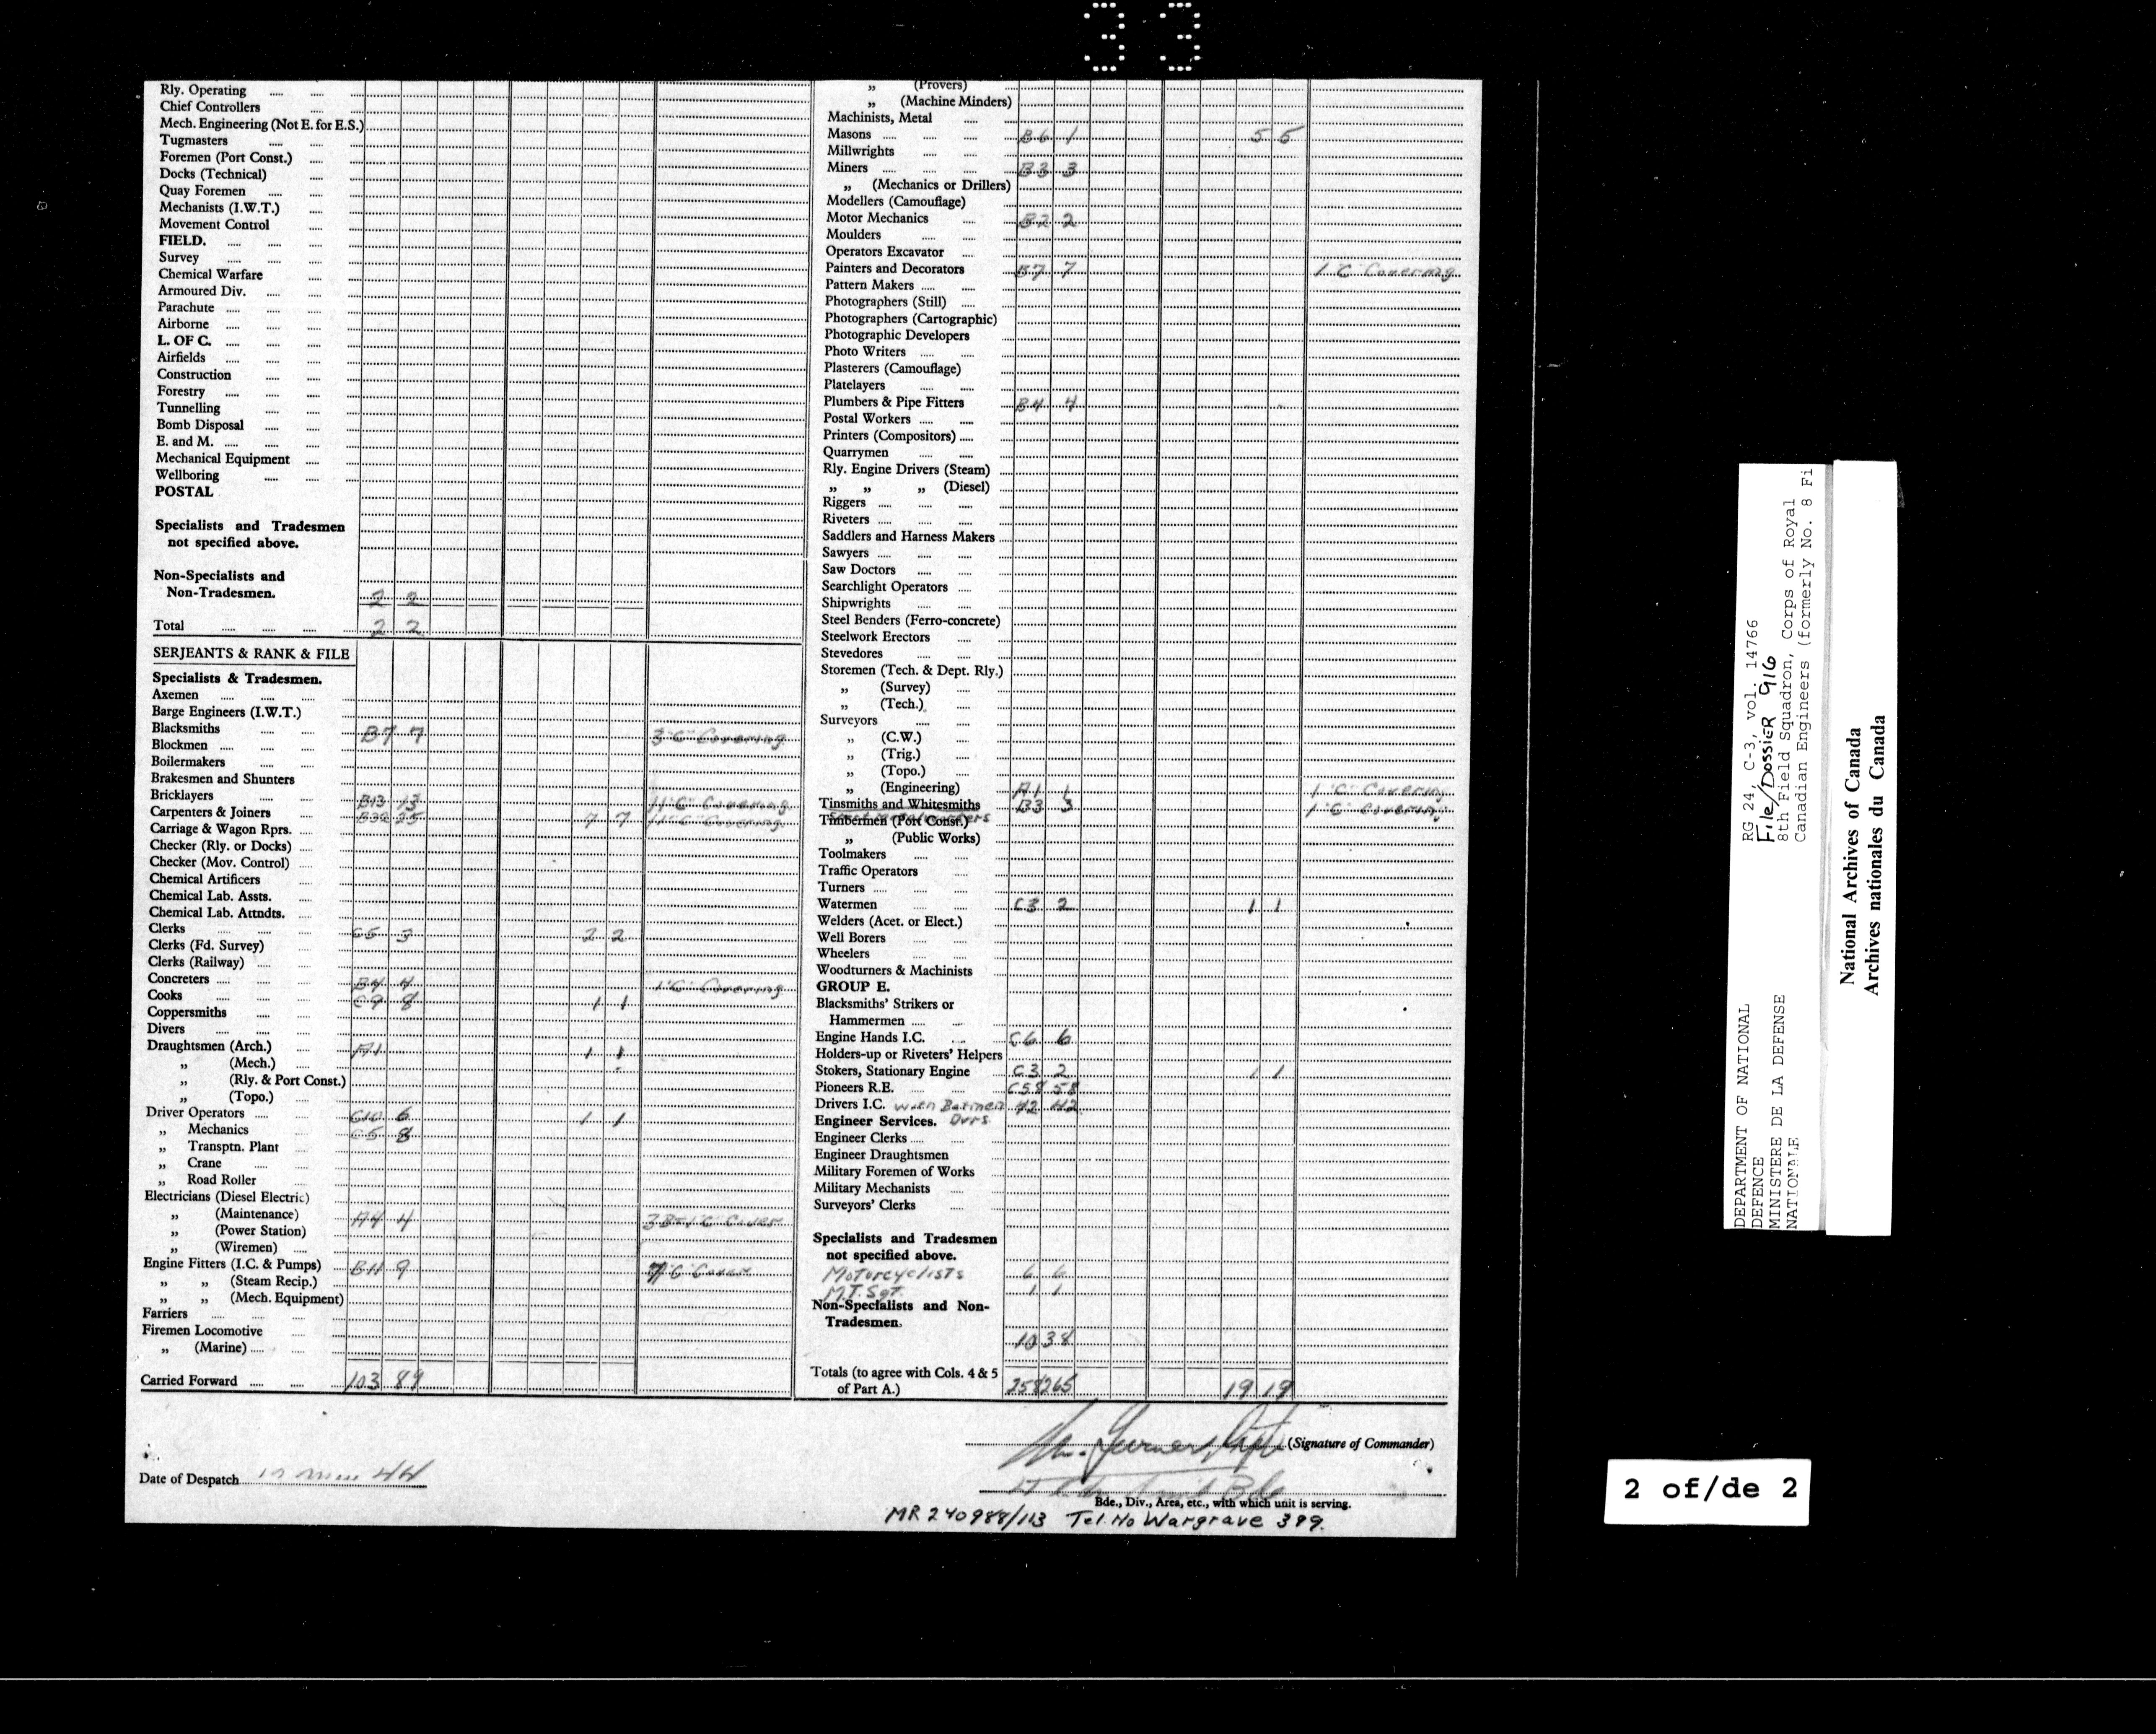 33
Rly. Operating
Chief Controllers
Mech. Engineering (Not E. for E.S.)
Tugmasters
Foremen (Port Const.)
Docks (Technical)
Quay Foremen
Mechanists (I.W.T.)
Movement Control
FIELD.
Survey
Chemical Warfare
Armoured Div.
Parachute
Airborne
L. OF C.
Airfields
Construction
Forestry
Tunnelling
Bomb Disposal
E. and M.
Mechanical Equipment
Wellboring
POSTAL
Specialists and Tradesmen
not specified above.
Non-Specialists and
Non-Tradesmen. 2 2
Total 2 2
SERJEANTS & RANK & FILE
Specialists & Tradesmen.
Axemen
Barge Engineers (I.W.T.)
Blacksmiths B7 7 3 "C" Covering
Blockmen
Boilermakers
Brakesmen and Shunters
Bricklayers B13 13 "C" Covering
Carpenters & Joiners 25 7 7 "C" Covering
Carriage & Wagon Rprs.
Checker (Rly. or Docks)
Checker (Mov. Control)
Chemical Artificers
Chemical Lab. Assts.
Chemical Lab. Attndts.
Clerks C5 3 2 2
Clerks (Fd. Survey)
Clerks (Railway)
Concreters B4 4 1 "C" Covering
Cooks C9 8 1 1
Coppersmiths
Divers
Draughtsmen (Arch.) A1 1 1
„ (Mech.)
„ (Rly. & Port Const.)
„ (Topo.)
Driver Operators C10 6 1 1
„ Mechanics C5 8
„ Transptn. Plant
„ Crane
„ Road Roller
Electricians (Diesel Electric)
„ (Maintenance) A4 4 3B-1"C" Cover
„ (Power Station)
„ (Wiremen)
Engine Fitters (I.C. & Pumps) B11 9 7 "C" Cover
„ „ (Steam Recip.)
„ „ (Mech. Equipment)
Farriers
Firemen Locomotive
„ (Marine)
Carried Forward 103 89
„ (Provers)
„ (Machine Minders)
Machinists, Metal
Masons B6 1 5 5
Millwrights
Miners B3 3
„ (Mechanics or Drillers)
Modellers (Camouflage)
Motor Mechanics B2 2
Moulders
Operators Excavator
Painters and Decorators B7 7 1 "C" Covering
Pattern Makers
Photographers (Still)
Photographers (Cartographic)
Photographic Developers
Photo Writers
Plasterers (Camouflage)
Platelayers
Plumbers & Pipe Fitters B4 4
Postal Workers
Printers (Compositors)
Quarrymen
Rly. Engine Drivers (Steam)
„ „ „ (Diesel)
Riggers
Riveters
Saddlers and Harness Makers
Sawyers
Saw Doctors
Searchlight Operators
Shipwrights
Steel Benders (Ferro-concrete)
Steelwork Erectors
Stevedores
Storemen (Tech. & Dept. Rly.)
„ (Survey)
„ (Tech.)
Surveyors
„ (C.W.)
„ (Trig.)
„ (Topo.)
„ (Engineering) A1 1 1 "C" Covering
Tinsmiths and Whitesmiths B3 3 1 "C" Covering
Timbermen (Port Const.)
„ (Public Works)
Toolmakers
Traffic Operators
Turners
Watermen C3 2 1 1
Welders (Acet. or Elect.)
Well Borers
Wheelers
Woodturners & Machinists
GROUP E.
Blacksmiths' Strikers or
Hammermen
Engine Hands I.C. C6 6
Holders-up or Riveters' Helpers
Stokers, Stationary Engine C3 2 1 1
Pioneers R.E. C58 58
Drivers I.C. with Batmen 42 42
Engineer Services. Dvrs.
Engineer Clerks
Engineer Draughtsmen
Military Foremen of Works
Military Mechanists
Surveyors' Clerks
Specialists and Tradesmen
not specified above.
Motorcyclists 6 6
M.T. Sgt. 1 1
Non-Specialists and Non-
Tradesmen.
10 38
Totals (to agree with Cols. 4 & 5
of Part A.) 258 265 19 19
(Signature of Commander)
Date of Despatch 44
Bde., Div., Area, etc., with which unit is serving.
MR 240988/113 Tel. No Wargrave 399.
RG 24, C-3, vol. 14766
File/Dossier 916
8th Field Squadron, Corps of Royal
Canadian Engineers (formerly No. 8 Fi
DEPARTMENT OF NATIONAL
DEFENCE
MINISTERE DE LA DEFENSE
NATIONALE
National Archives of Canada
Archives nationales du Canada
2 of/de 2